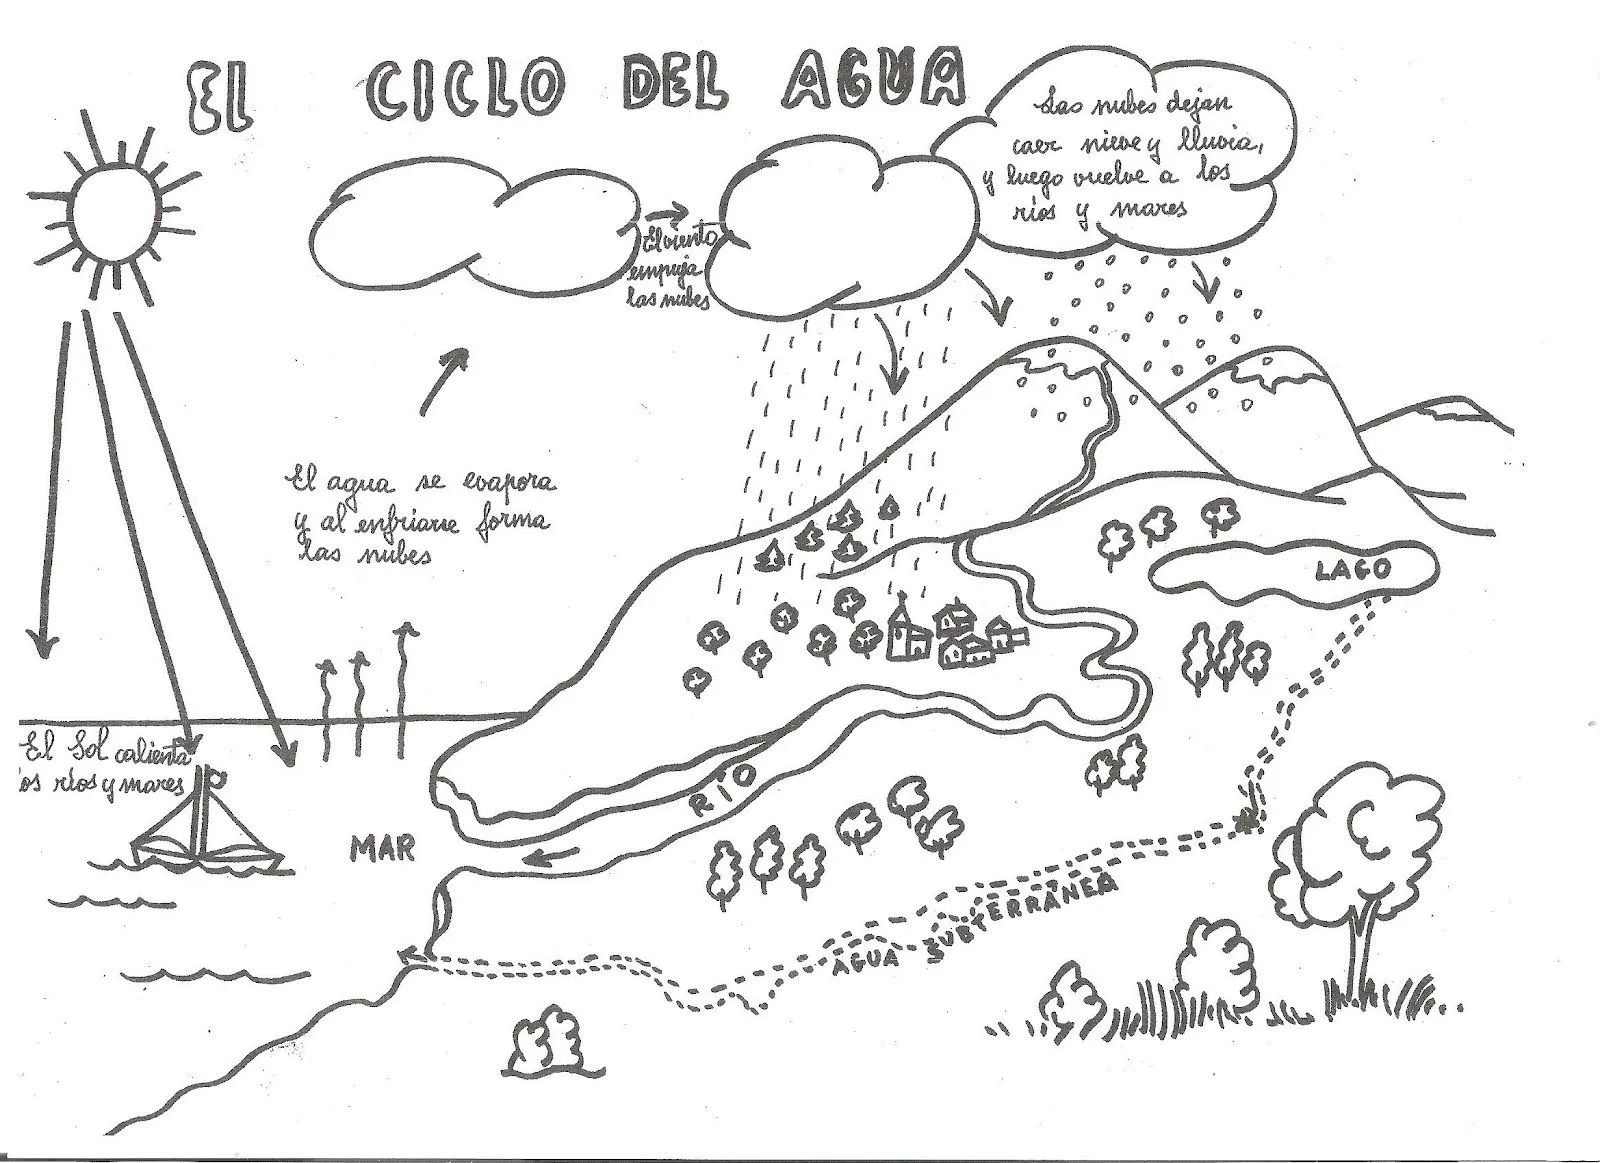 EL CICLO DEL AGUA
Las nubes dejan
caer nieve y lluvia,
y luego vuelve a los
ríos y mares
El viento
empuja
las nubes
El agua se evapora
y al enfriarse forma
las nubes
El Sol calienta
os ríos y mares
LAGO
RÍO
MAR
AGUA SUBTERRÁNEA